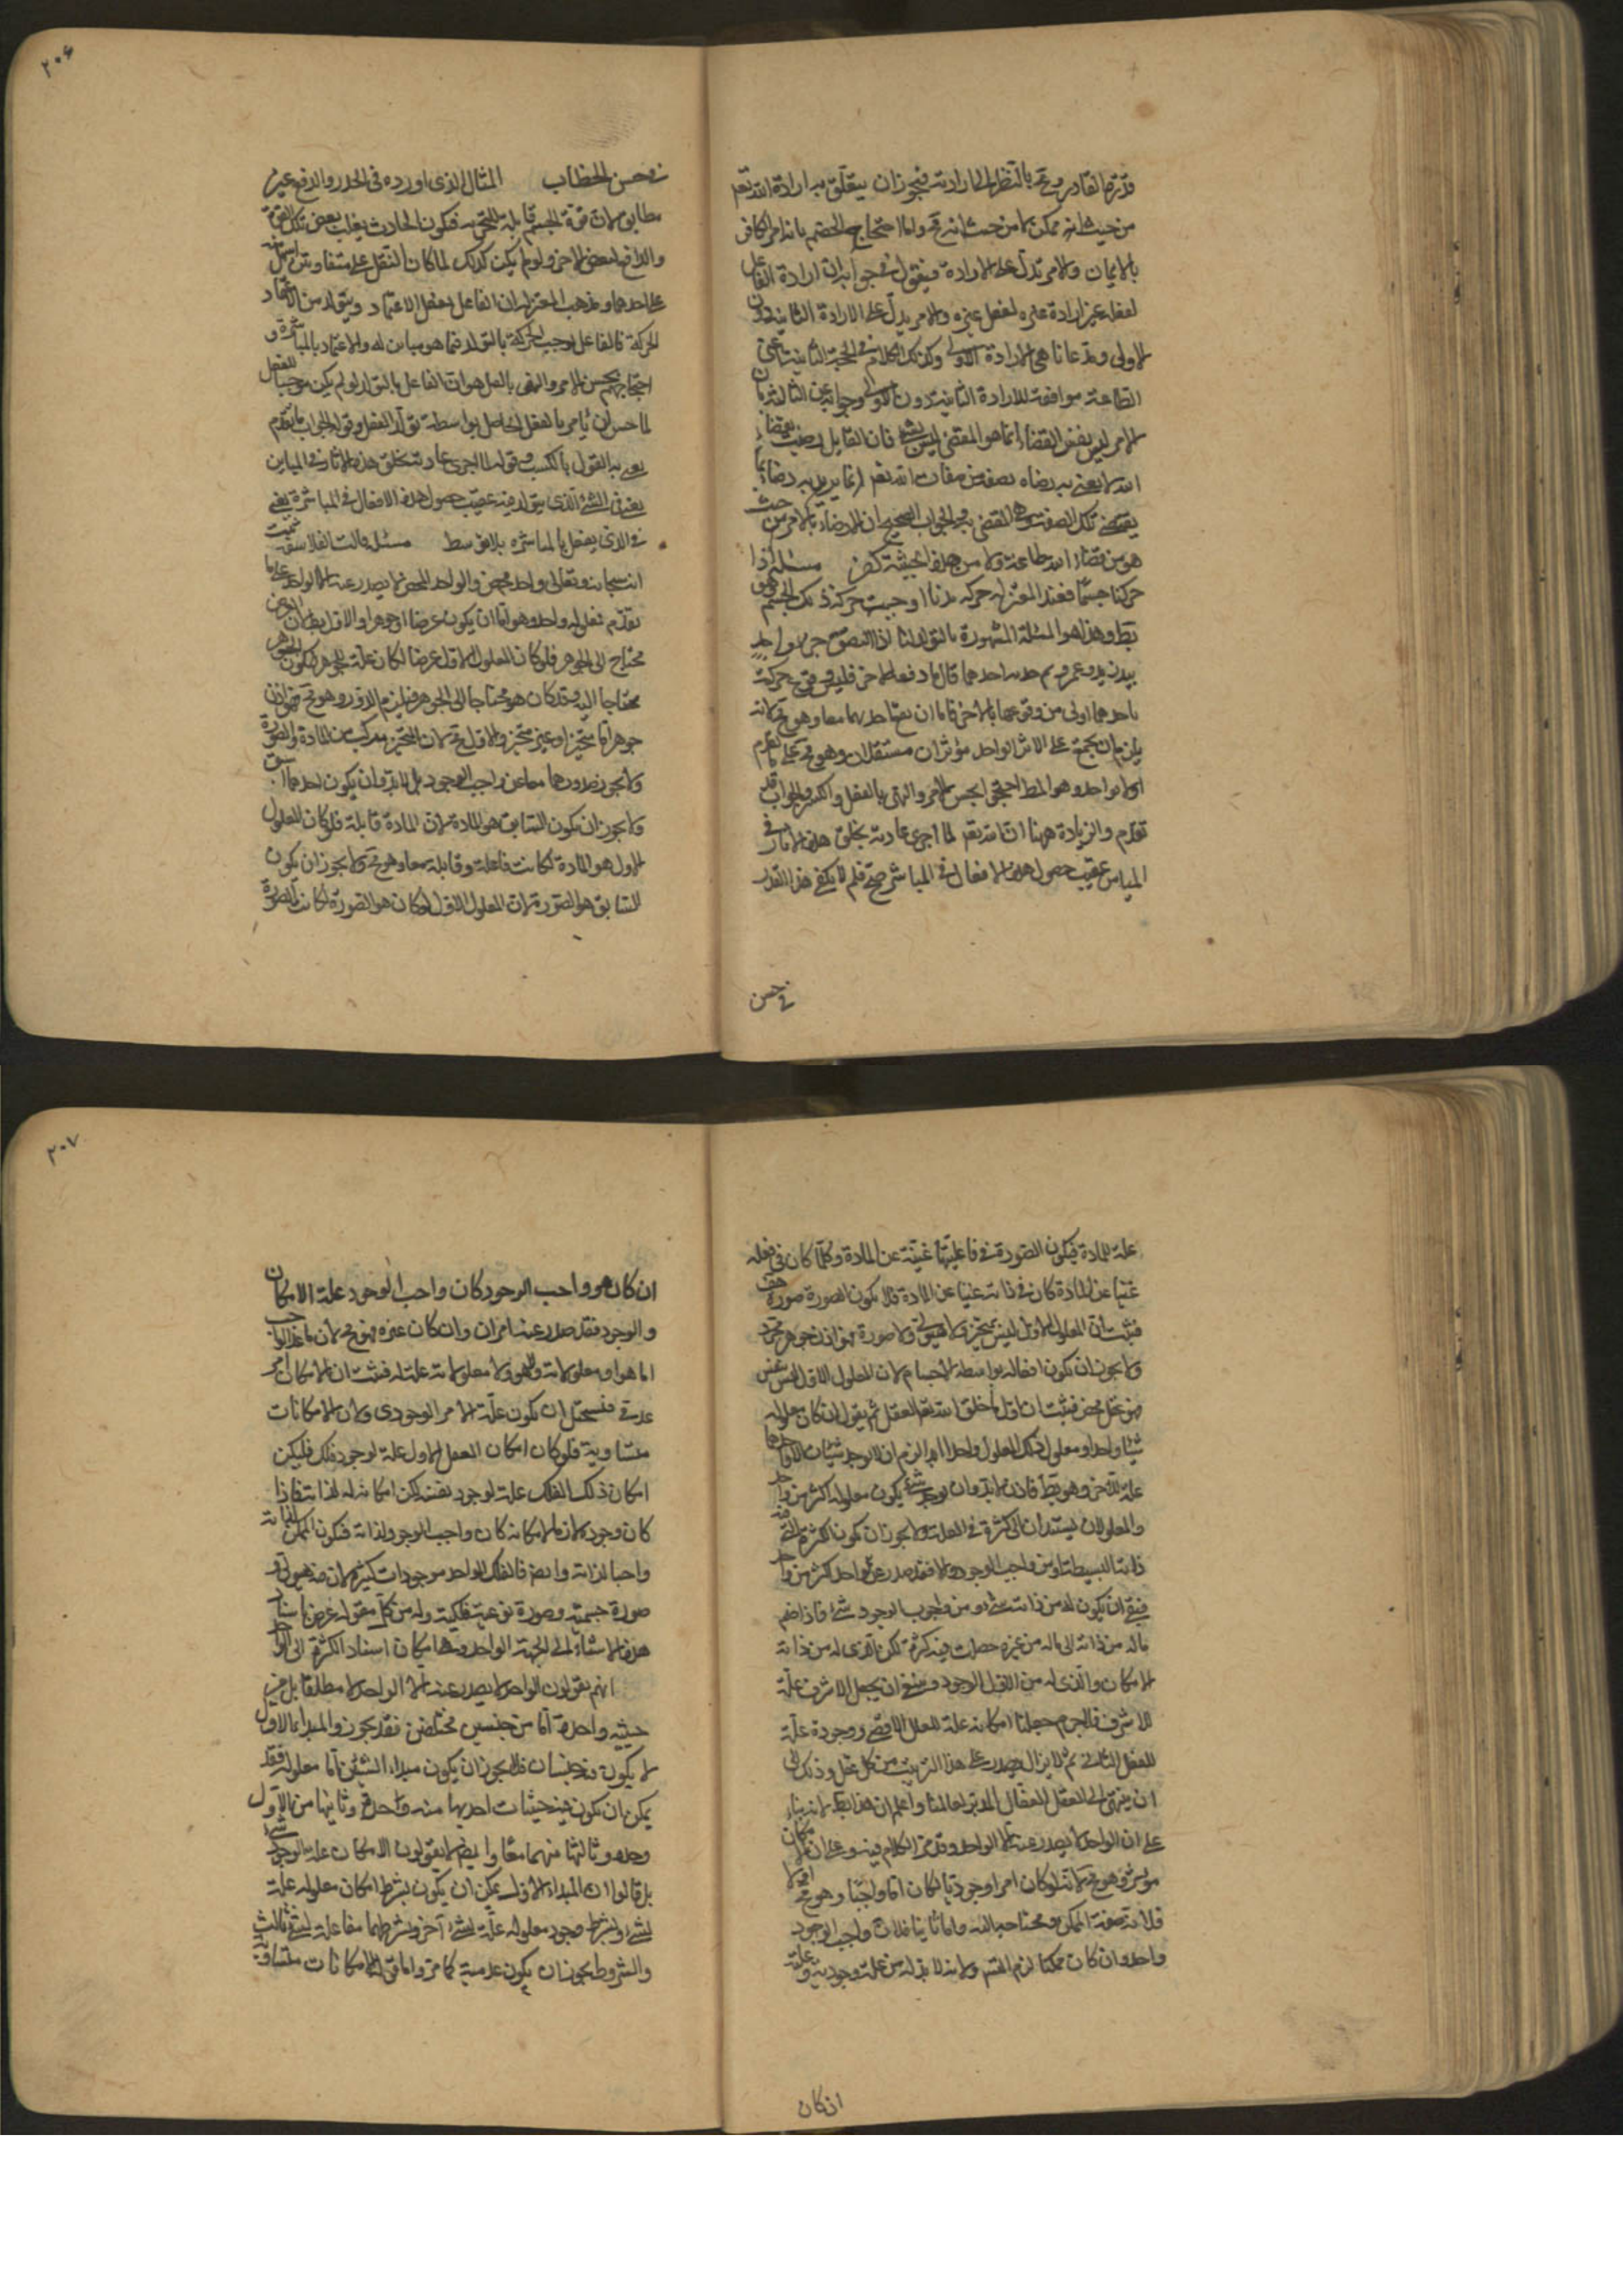 قدرة القادر ومحمد بالنظر الى ارادته فيجوز ان يتعلق به ارادة الله تعالى
من حيث انه ممكن لا من حيث انه محـ واما احتجاج الخصم بانه امر الكافر
بالايمان والامر يدل على الارادة فيقول في جوابه ان ارادة الفاعل
لفعله غير ارادة غيره لفعل غيره والامر يدل على الارادة الثانية دون
الاولى ومدعانا هي الارادة الاولى وكذلك الكلام في الحجة الثانية اعنى
الطاعة موافقة للارادة الثانية دون الاولى وجوابه عن الثالثة بان
الامر ليس نفس القضاء انما هو المقضى ليس بشئ فان القايل رضيت بقضاء
الله لا يعنى به رضاه بصفة من صفات الله تعـ انما يريد به رضاه بما
يقتضى تلك الصفة وهو المقضى به والجواب الصحيح ان الرضاء بالكفر من حيث
هو من قضاء الله طاعة ولا من هذه الحيثية كفر مسئلة اذا
حركنا جسما فعند المعتزلة حركة يدنا اوجبت حركة ذلك الجسم وهو
بط وهذا هو المسئلة المشهورة بالتولد لنا اذا التصق جزء واحد
بيد زيد وعمرو ثم جذبه احدهما حال ما دفعه الاخر فليس وقوع حركته
باحدهما اولى من وقوعها بالاخر فاما ان يقع بهما معا وهو محـ لانه
يلزم ان يجتمع على الاثر الواحد مؤثران مستقلان وهو محـ على ما تقدم
او لا بواحد وهو المط احتجوا بحسن الامر والنهى بالفعل والكسر والجواب قد
تقدم والزيادة ههنا ان الله تعـ لما اجرى عادته بخلق هذه الاثار في
المباين عقيب حصول هذه الافعال في المباشر صح فلم لا يكفى هذا القدر
في حسن
٢٠٦
في حسن الخطاب المثال الذى اورده في الجذر والدفع غير
مطابق لان قوة الجسم قابلة للتجزيه فيكون الحادث يغلب بعض تلك القوة
والدافع لبعض الاخر ولو لم يكن كذلك لما كان النقل على متفاوتين اسهل منه
على احدهما ومذهب المعتزلة ان الفاعل يفعل الاعتماد ويتولد من الاعتماد
الحركة فالفاعل يوجب الحركة بالتولد فيما هو مباين له والاعتماد بالمباشرة و
احتجاجهم بحسن الامر والنهى بالفعل هو ان الفاعل بالتولد لو لم يكن موجبا للفعل
لما حسن ان يأمر بالفعل الحاصل بواسطة تولد الفعل وقوله الجواب ما تقدم
يعنى به القول بالكسب وقوله لما اجرى عادته بخلق هذه الاثار في المباين
يعنى في الشئ الذى يتولد فيه عقيب حصول هذه الافعال في المباشرة يعنى
في الذى يفعل بالمباشرة بلا توسط مسئلة قالت الفلاسفة ثبت
انه سبحانه وتعالى واحد محض والواحد المحض لا يصدر عنه الا الواحد على ما
تقدم فمعلوله واحد وهو اما ان يكون عرضا او جوهرا والاول بط لان العرض
محتاج الى الجوهر فلو كان المعلول الاول عرضا لكان علة للجوهر فيكون الجوهر
محتاجا اليه وقد كان هو محتاجا الى الجوهر فيلزم الدور وهو محـ فهو اذن
جوهر اما متحيز او غير متحيز والاول محـ لان المتحيز مركب من المادة والصورة
ولا يجوز صدورهما معا عن واجب الوجود بل لا بد وان يكون احدهما اسبق
ولا يجوز ان يكون السابق هو المادة لان المادة قابلة فلو كان المعلول
الاول هو المادة لكانت فاعلة وقابلة معا وهو محـ ولا يجوز ان يكون
السابق هو الصورة لان المعلول الاول لو كان هو الصورة لكانت الصورة
علة للمادة فيكون الصورة في فاعليتها غنية عن المادة وكلما كان في فعله
غنيا عن المادة كان في ذاته غنيا عن المادة فلا يكون الصورة صورة هف
فثبت ان المعلول الاول ليس بمتحيز ولا هيولى ولا صورة فهو اذن جوهر مجرد
ولا يجوز ان يكون افعاله بواسطة الاجسام لان المعلول الاول ليس عنه
فهو عقل محض فثبت ان اول ما خلق الله تعـ العقل ثم يقول ان كان معلوله
شيئا واحدا ومعلول ذلك المعلول واحدا ابدا لزم ان لا يوجد شيئان الا واحدهما
علة للاخر وهو بط فاذن لا بد وان يوجد شئ يكون معلوله اكثر من واحد
والمعلولان يستندان الى كثرة في العلة ولا يجوز ان يكون اكثر ثم التى منه
ذاته البسيطة او من واجب الوجود والا فقد صدر عن الواحد اكثر من واحد
فبقى ان يكون له من ذاته شئ ومن واجب الوجود شئ فاذا ضم
ماله من ذاته الى ماله من غيره حصلت فيه كثرة لكن الذى له من ذاته
الامكان والذى له من الاول الوجود وينبغى ان يجعل الاشرف علة
للاشرف فلا جرم جعلنا امكانه علة للفلك الاقصى ووجوده علة
للعقل الثانى ثم لا يزال يصدر على هذا الترتيب من كل عقل وذلك الى
ان ينتهى الى العقل الفعال المدبر لعالمنا واعلم ان هذا بط لانه بناء
على ان الواحد لا يصدر عنه الا الواحد وقد مر الكلام فيه وعلى ان الامكان
مؤثر وهو محـ لانه لو كان امرا وجوديا لكان اما واجبا وهو محـ اما اولا
فلانه صفة الممكن ومحتاجه اليه واما ثانيا فلان واجب الوجود
واحد وان كان ممكنا لزم التسـ ولانه لا بد له من علة وجودية وعلته
ان كان
٢٠٧
ان كان هو واجب الوجود كان واجب الوجود علة الامكان
والوجود فقد صدر عنه امران وان كان غيره فهو محـ لان ما عدا الواجب
اما هو او معلولاته ولا هو ولا معلولاته علة له فثبت ان الامكان امر
عدمى فيستحيل ان يكون علة للامر الوجودى ولان الامكانات
متساوية فلو كان امكان العقل الاول علة لوجود فلك فليكن
امكان ذلك الفلك علة لوجود نفسه لكن امكانه له لذاته فاذا
كان وجوده لازما لامكانه كان واجب الوجود لذاته فيكون الممكن لذاته
واجبا لذاته وايضا فالفلك الواحد موجودات كثيرة لان فيه هيولى و
صورة جسمية وصورة نوعية فلكية وله من كل مقولة عرض اسناد
هذه الاشياء الى الجهة الواحدة وهى امكان اسناد الكثرة الى الواحد
انهم يقولون الواحد لا يصدر عنه الا الواحد لا مطلقا بل من
حيثية واحدة اما من جنسين مختلفين فقد يجوز والمبداء الاول
لا يكون فيه حيثيتان فلا يجوز ان يكون مبداء الشيئين اما معلوله فقد
يمكن ان يكون فيه حيثيات احديها منه وحده وثانيها من الاول
وحده وثالثها منهما معا وايضا لا يقولون الامكان علة لوجود شئ
بل قالوا ان المبداء الاول يمكن ان يكون بشرط امكان معلوله علة
لشئ وبشرط وجود معلوله علة لشئ آخر وبشرطهما معا علة لشئ ثالث
والشروط يجوز ان يكون عدمية كما مر واما قوله الامكانات متساوية